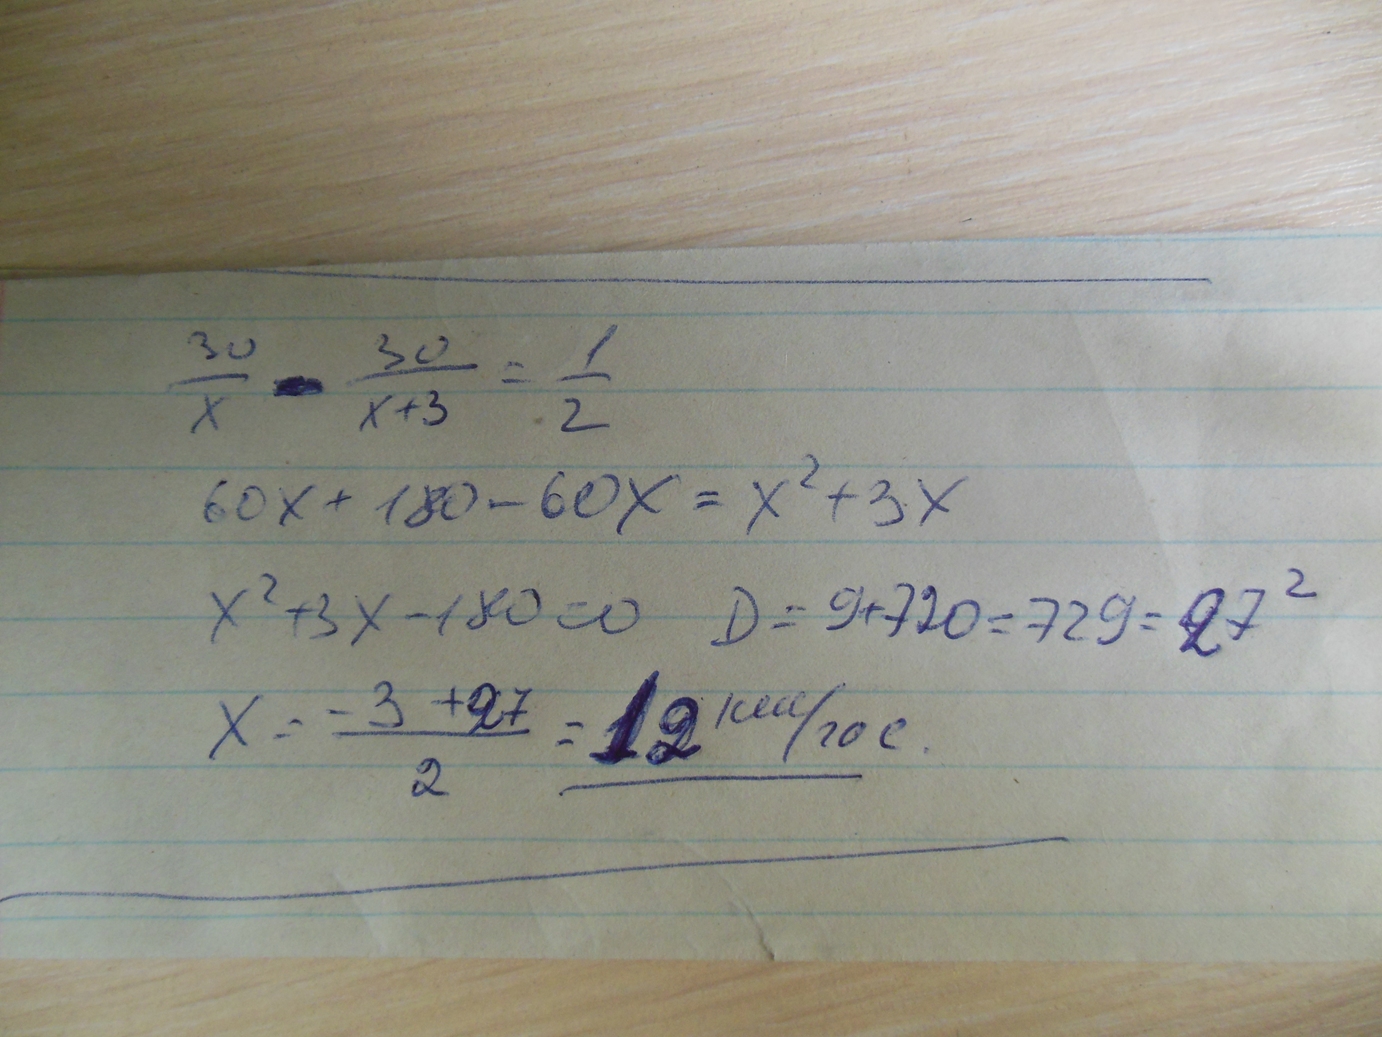 30/x - 30/(x+3) = 1/2
60x + 180 - 60x = x² + 3x
x² + 3x - 180 = 0 D = 9 + 720 = 729 = 27²
x = (-3 + 27)/2 = 12 км/год.